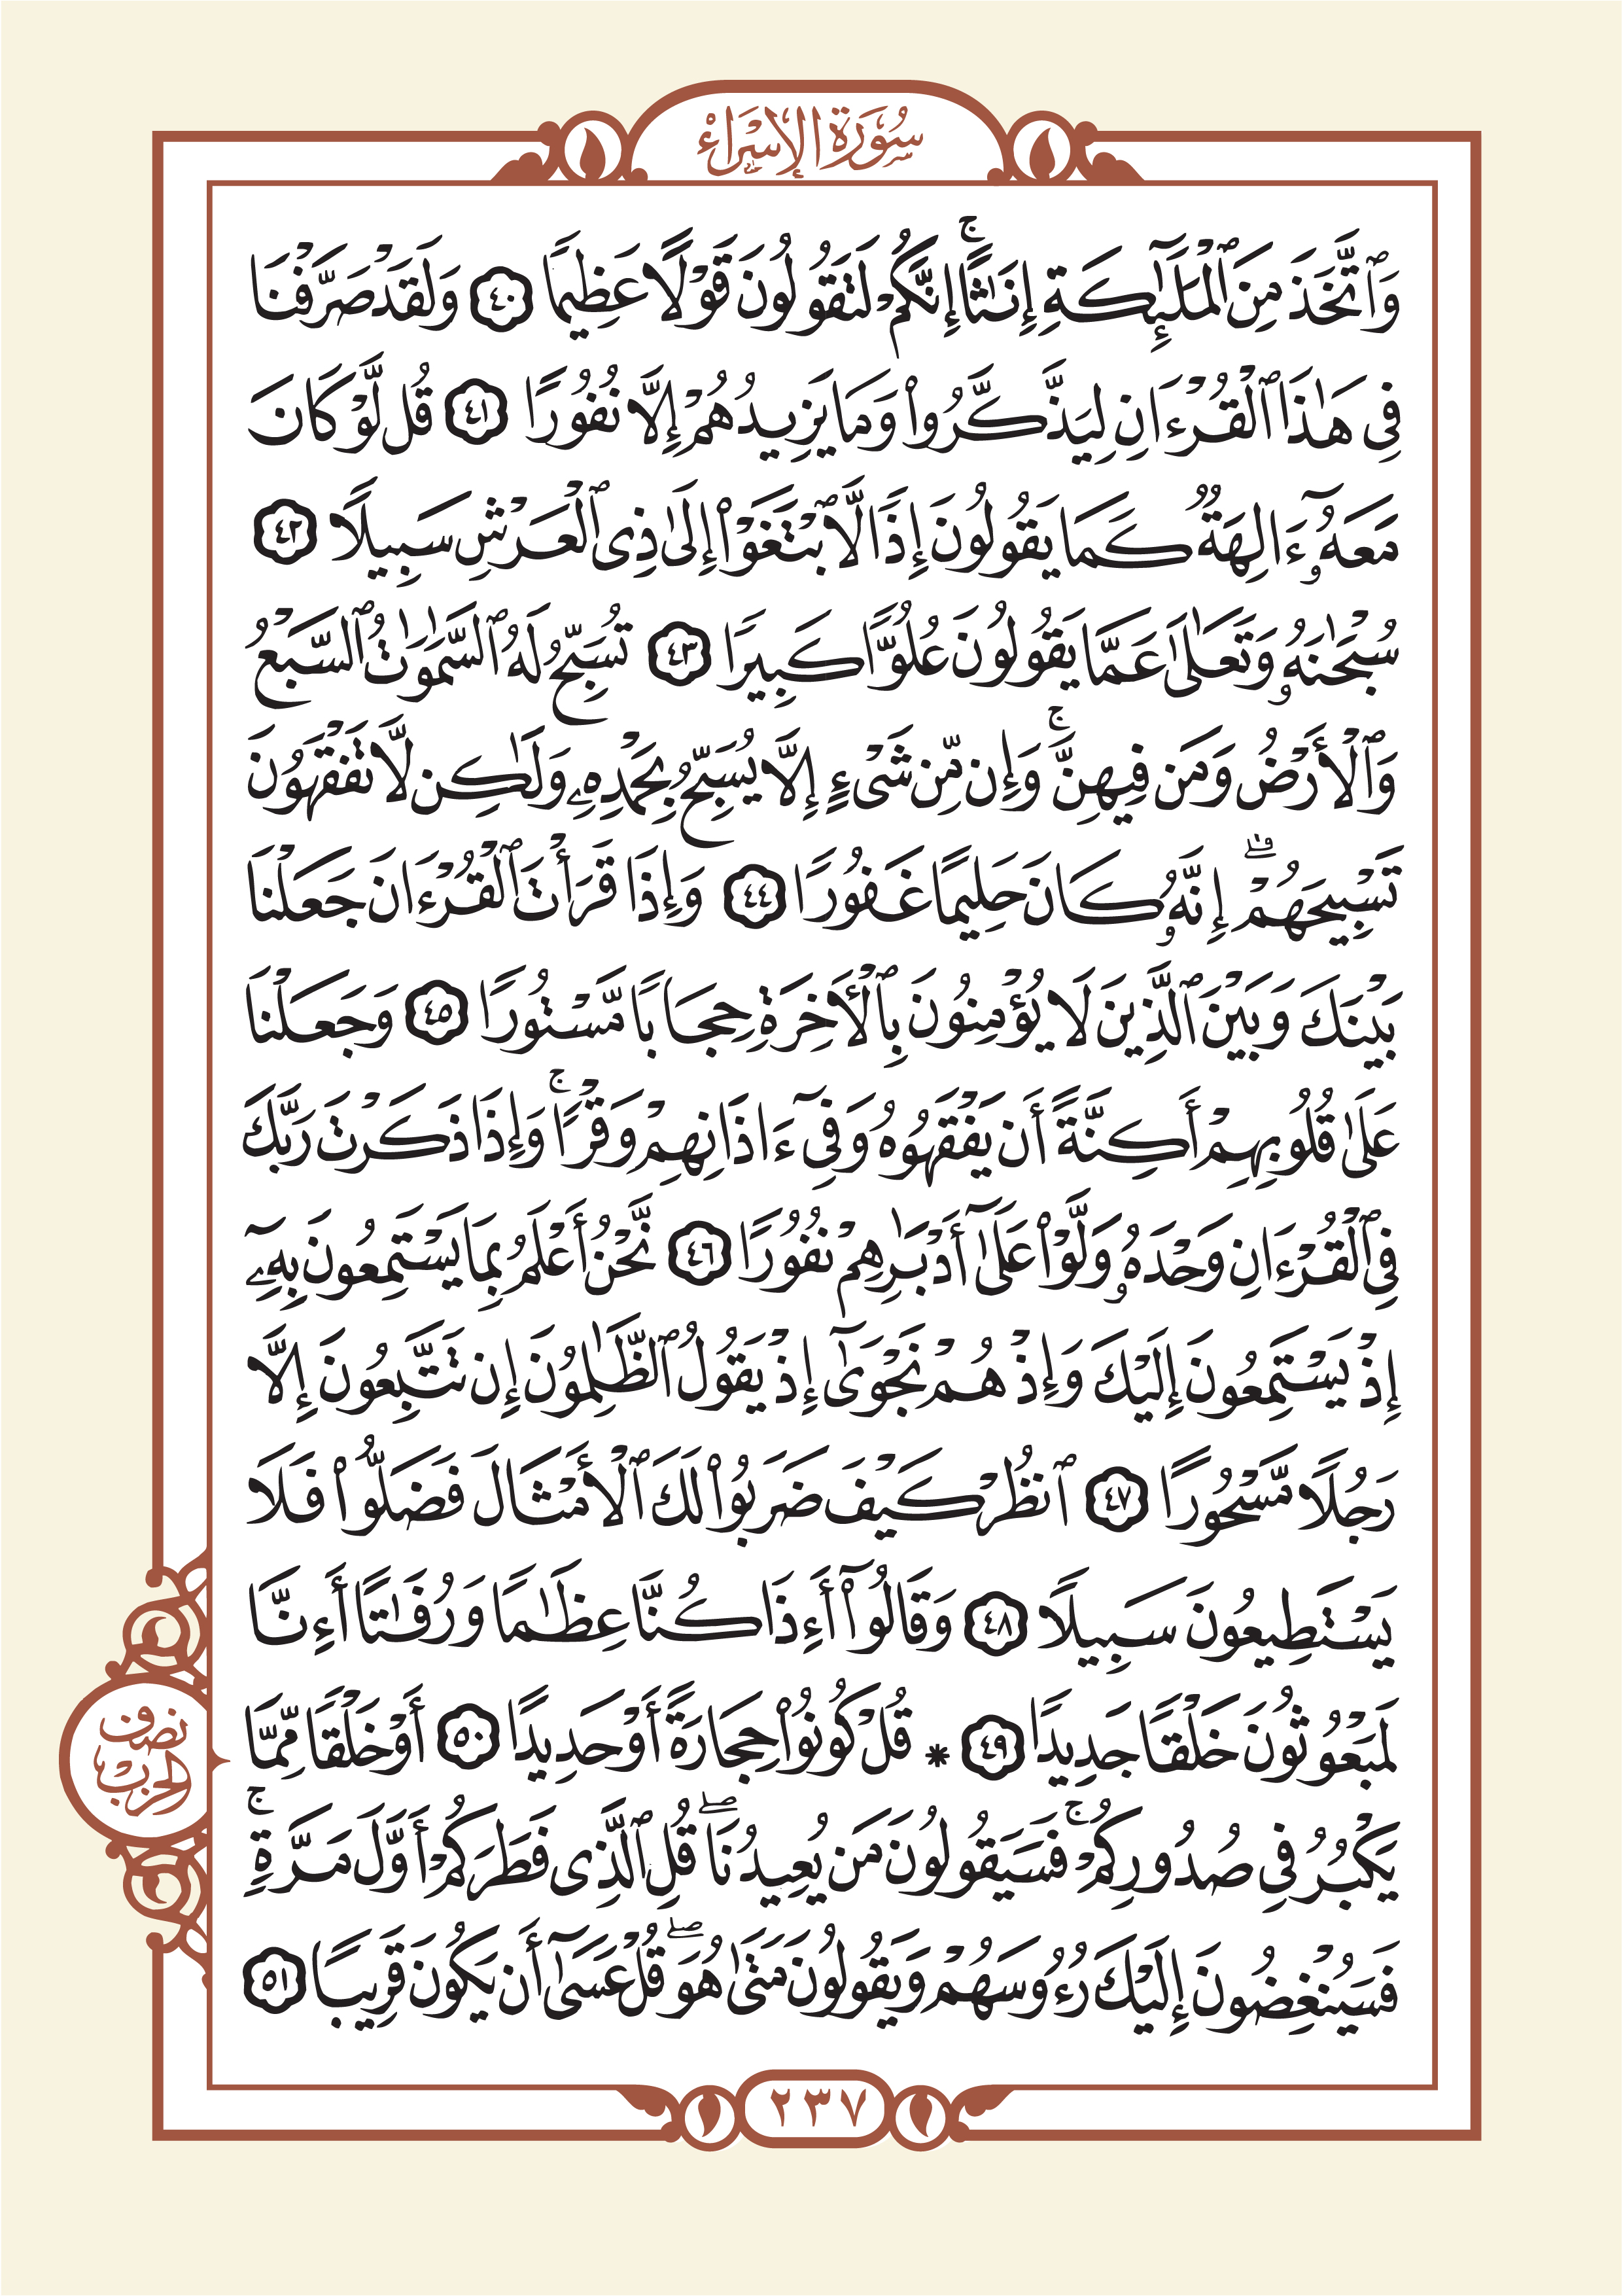 سُورَةُ الإِسْرَاءِ
وَٱتَّخَذَ مِنَ ٱلْمَلَٰٓئِكَةِ إِنَٰثًاۚ إِنَّكُمْ لَتَقُولُونَ قَوْلًا عَظِيمًا ٤٠ وَلَقَدْ صَرَّفْنَا
فِى هَٰذَا ٱلْقُرْءَانِ لِيَذَّكَّرُوا۟ وَمَا يَزِيدُهُمْ إِلَّا نُفُورًا ٤١ قُل لَّوْ كَانَ
مَعَهُۥٓ ءَالِهَةٌ كَمَا يَقُولُونَ إِذًا لَّٱبْتَغَوْا۟ إِلَىٰ ذِى ٱلْعَرْشِ سَبِيلًا ٤٢
سُبْحَٰنَهُۥ وَتَعَٰلَىٰ عَمَّا يَقُولُونَ عُلُوًّا كَبِيرًا ٤٣ تُسَبِّحُ لَهُ ٱلسَّمَٰوَٰتُ ٱلسَّبْعُ
وَٱلْأَرْضُ وَمَن فِيهِنَّۚ وَإِن مِّن شَىْءٍ إِلَّا يُسَبِّحُ بِحَمْدِهِۦ وَلَٰكِن لَّا تَفْقَهُونَ
تَسْبِيحَهُمْۗ إِنَّهُۥ كَانَ حَلِيمًا غَفُورًا ٤٤ وَإِذَا قَرَأْتَ ٱلْقُرْءَانَ جَعَلْنَا
بَيْنَكَ وَبَيْنَ ٱلَّذِينَ لَا يُؤْمِنُونَ بِٱلْأَخِرَةِ حِجَابًا مَّسْتُورًا ٤٥ وَجَعَلْنَا
عَلَىٰ قُلُوبِهِمْ أَكِنَّةً أَن يَفْقَهُوهُ وَفِىٓ ءَاذَانِهِمْ وَقْرًاۚ وَإِذَا ذَكَرْتَ رَبَّكَ
فِى ٱلْقُرْءَانِ وَحْدَهُۥ وَلَّوْا۟ عَلَىٰٓ أَدْبَٰرِهِمْ نُفُورًا ٤٦ نَّحْنُ أَعْلَمُ بِمَا يَسْتَمِعُونَ بِهِۦٓ
إِذْ يَسْتَمِعُونَ إِلَيْكَ وَإِذْ هُمْ نَجْوَىٰٓ إِذْ يَقُولُ ٱلظَّٰلِمُونَ إِن تَتَّبِعُونَ إِلَّا
رَجُلًا مَّسْحُورًا ٤٧ ٱنظُرْ كَيْفَ ضَرَبُوا۟ لَكَ ٱلْأَمْثَالَ فَضَلُّوا۟ فَلَا
يَسْتَطِيعُونَ سَبِيلًا ٤٨ وَقَالُوٓا۟ أَءِذَا كُنَّا عِظَٰمًا وَرُفَٰتًا أَءِنَّا
لَمَبْعُوثُونَ خَلْقًا جَدِيدًا ٤٩ * قُلْ كُونُوا۟ حِجَارَةً أَوْ حَدِيدًا ٥٠ أَوْ خَلْقًا مِّمَّا
يَكْبُرُ فِى صُدُورِكُمْۚ فَسَيَقُولُونَ مَن يُعِيدُنَاۖ قُلِ ٱلَّذِى فَطَرَكُمْ أَوَّلَ مَرَّةٍۚ
فَسَيُنْغِضُونَ إِلَيْكَ رُءُوسَهُمْ وَيَقُولُونَ مَتَىٰ هُوَۖ قُلْ عَسَىٰٓ أَن يَكُونَ قَرِيبًا ٥١
نصف
الحزب
٢٣٧